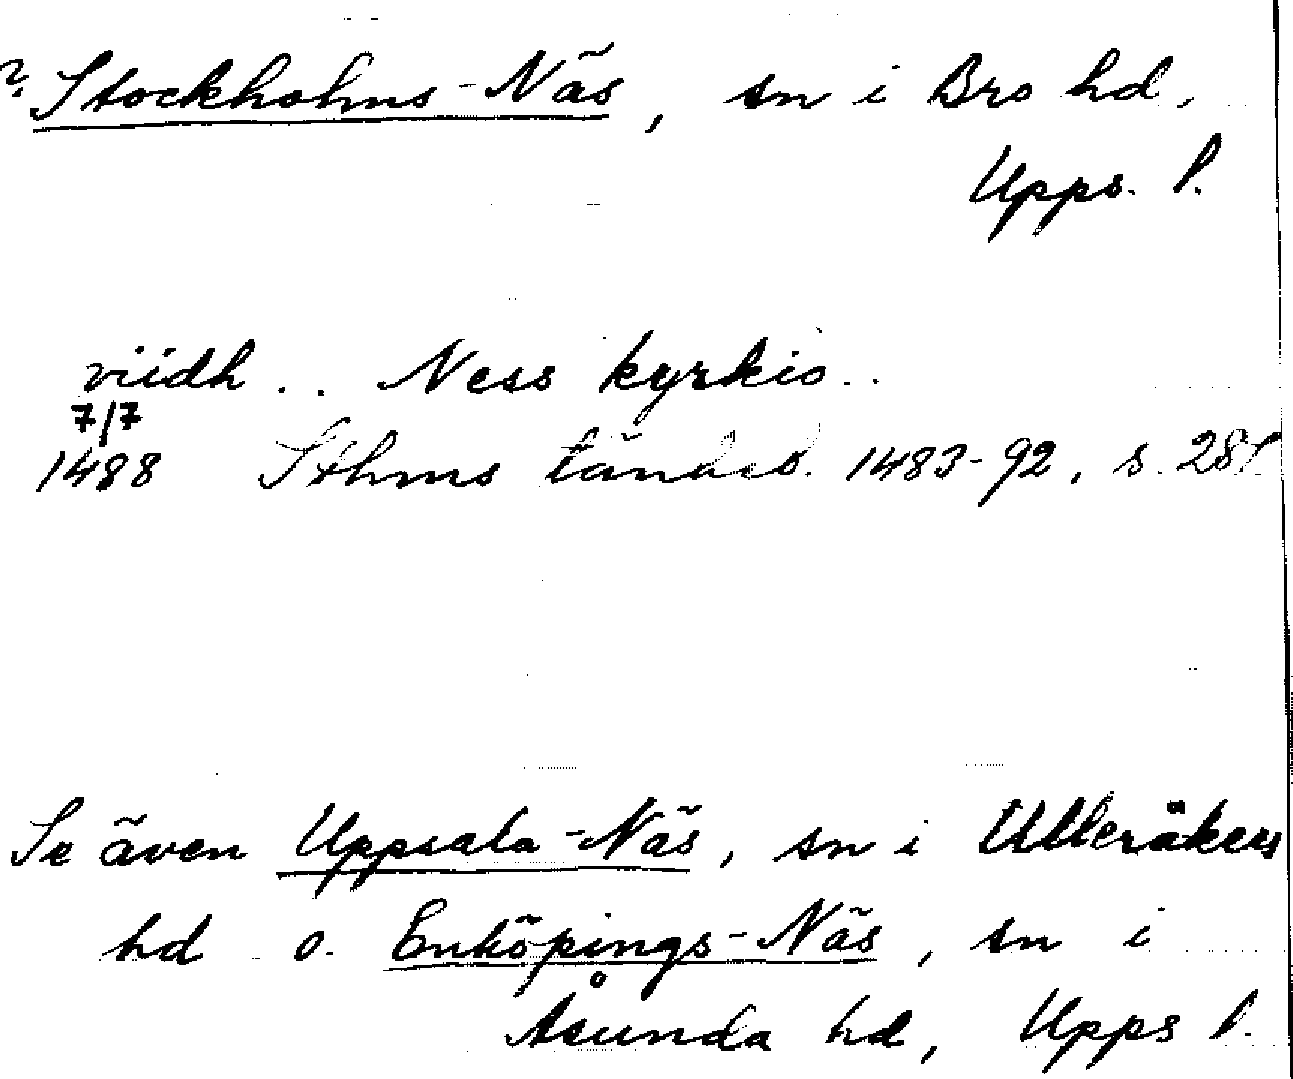 ? Stockholms-Näs, sn i Bro hd,
Upps. l.
viidh . . Ness kyrkio . .
7/7
1488 Sthms tänkeb. 1483-92, s. 281
Se även Uppsala-Näs, sn i Ulleråkers
hd o. Enköpings-Näs, sn i
Åsunda hd, Upps l.